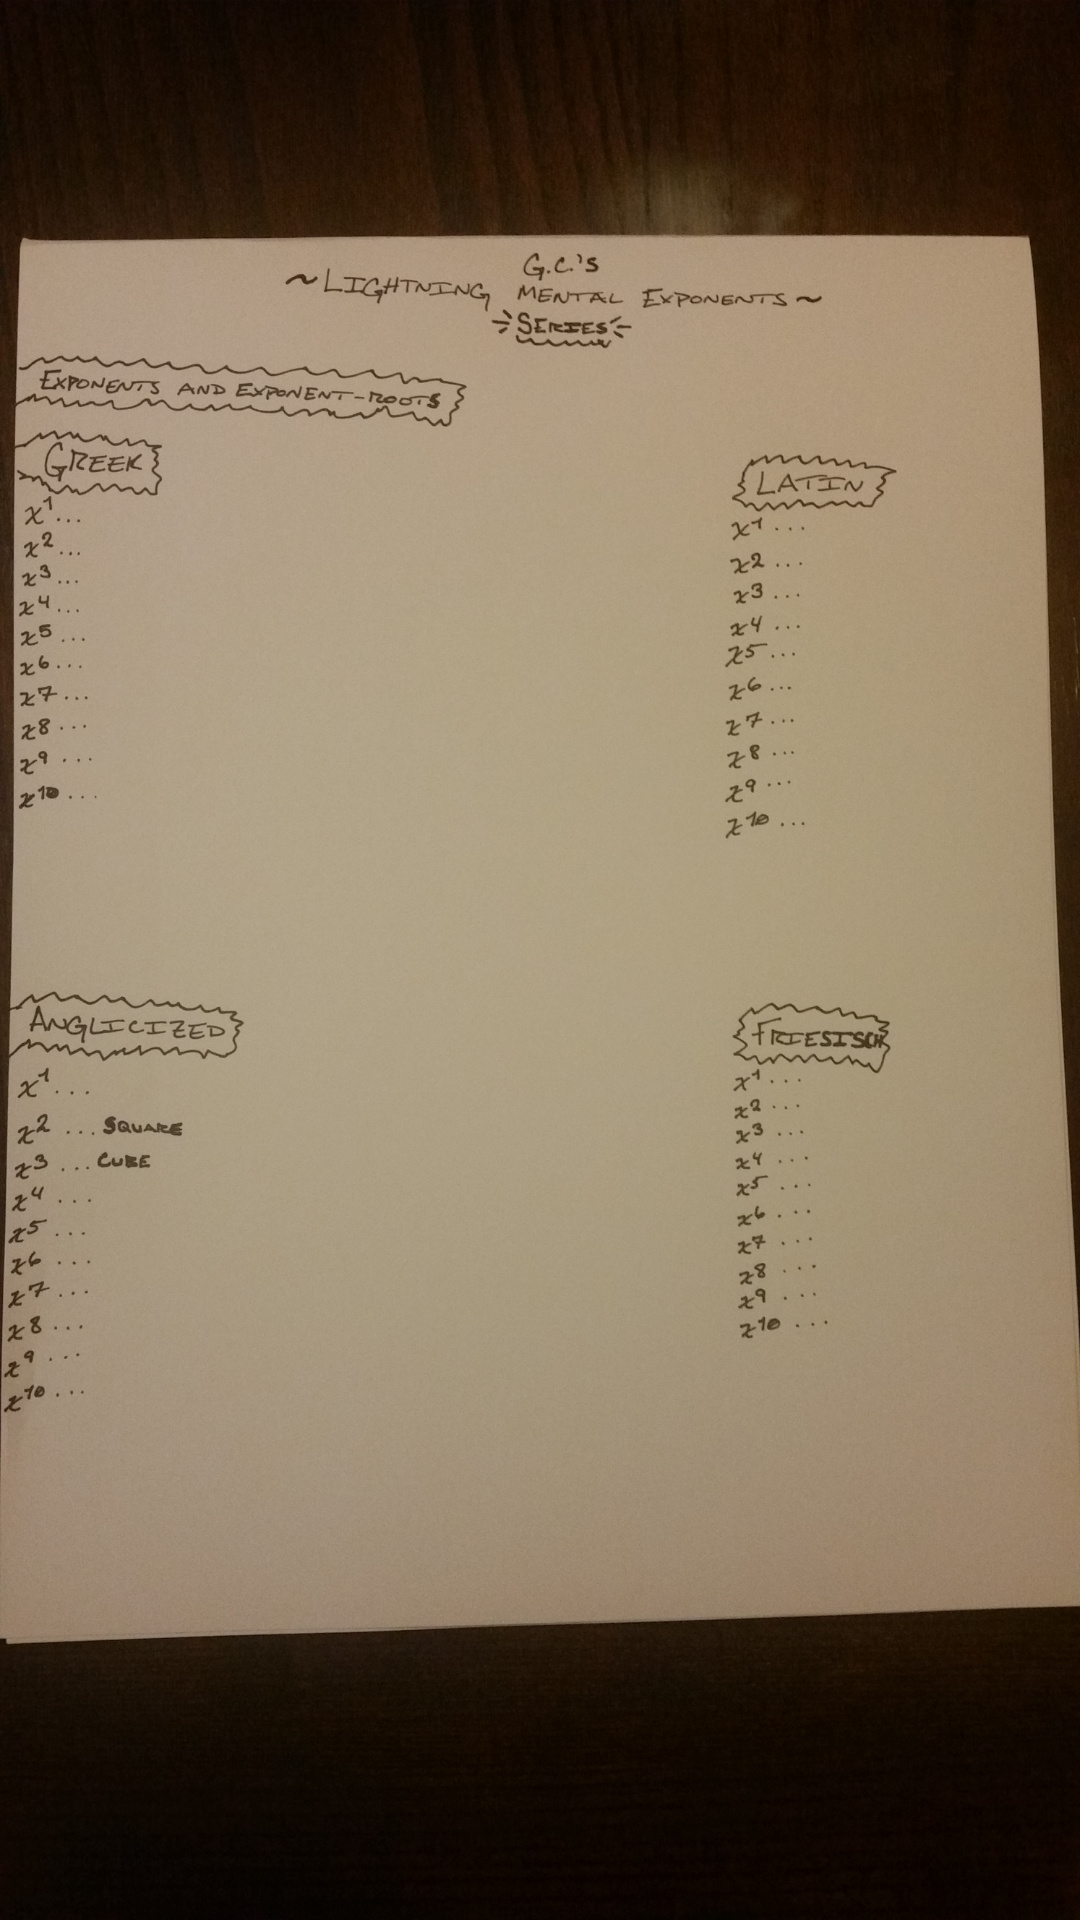 G.C.'s
~LIGHTNING MENTAL EXPONENTS~
SERIES
EXPONENTS AND EXPONENT-ROOTS
GREEK
x¹...
x²...
x³...
x⁴...
x⁵...
x⁶...
x⁷...
x⁸...
x⁹...
x¹⁰...
LATIN
x¹...
x²...
x³...
x⁴...
x⁵...
x⁶...
x⁷...
x⁸...
x⁹...
x¹⁰...
ANGLICIZED
x¹...
x²...SQUARE
x³...CUBE
x⁴...
x⁵...
x⁶...
x⁷...
x⁸...
x⁹...
x¹⁰...
FRIESISCH
x¹...
x²...
x³...
x⁴...
x⁵...
x⁶...
x⁷...
x⁸...
x⁹...
x¹⁰...